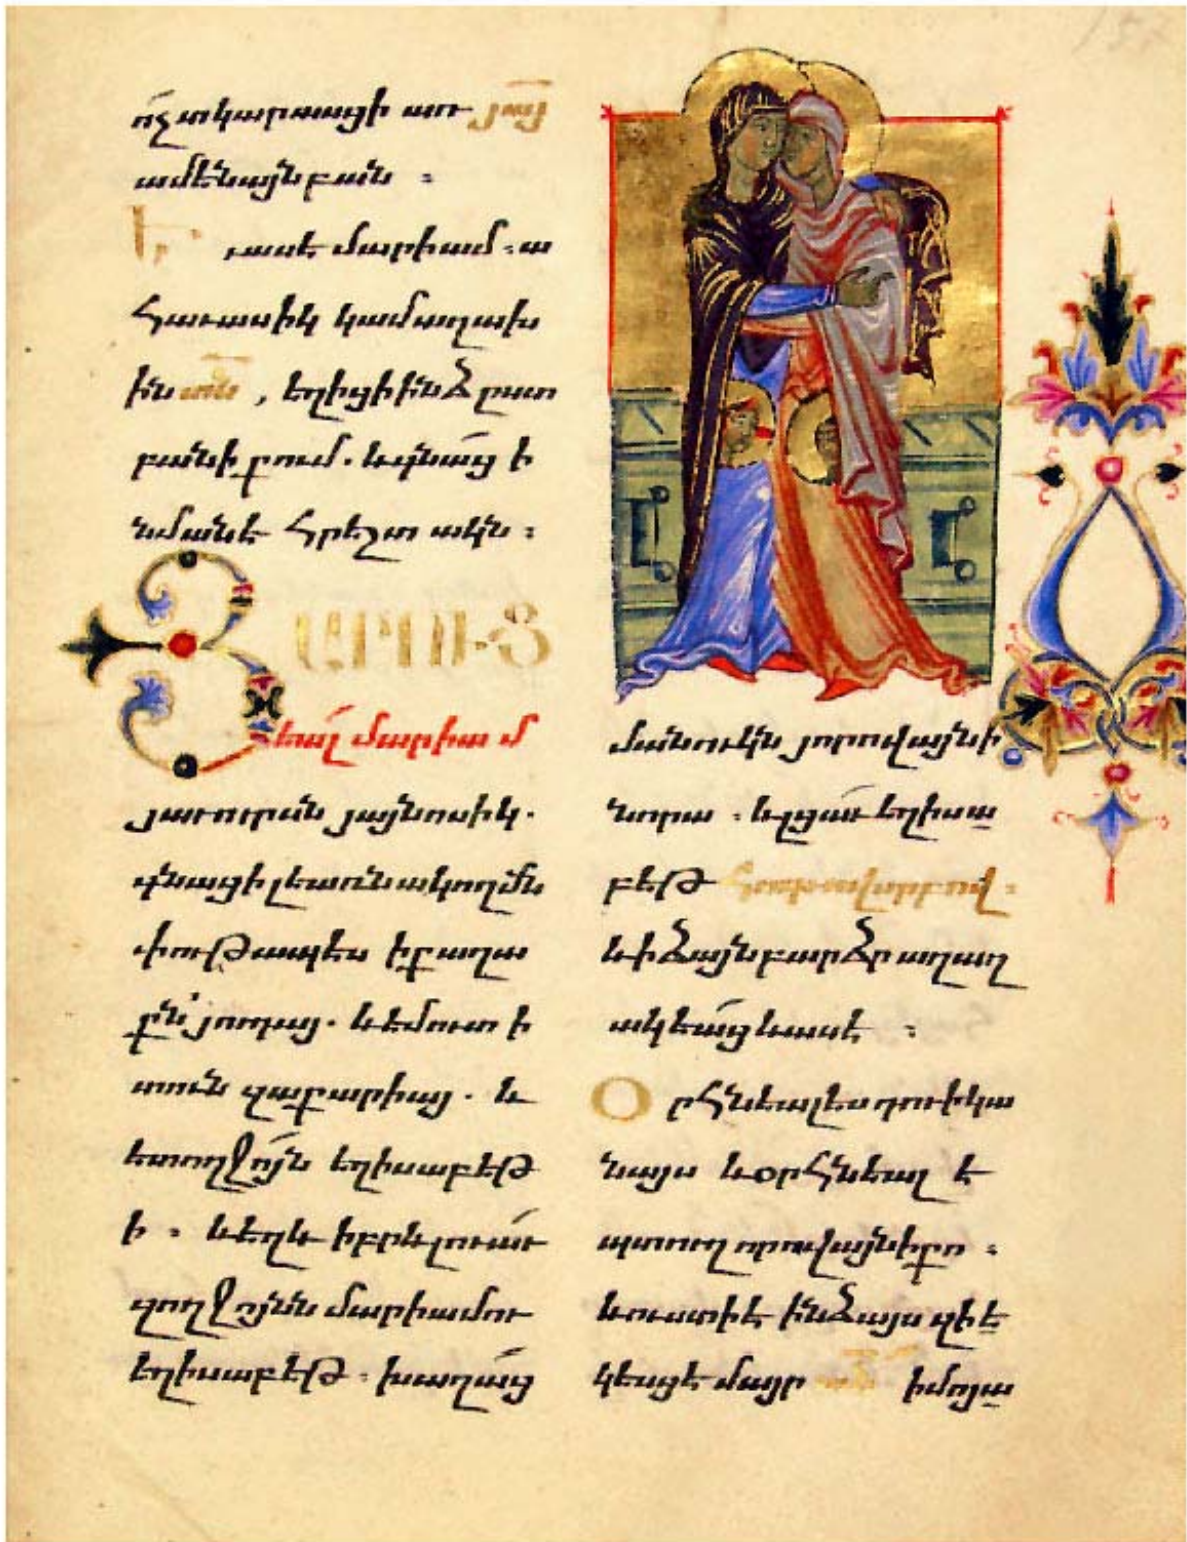 ոչ տկարասցի առ յայ
ամենայն բան ։
Եւ ասէ մարիամ ։ ա
հաւասիկ կամ աղախ
ին տն , եղիցի ինձ ըստ
բանի քում . և գնաց ի
նմանէ հրեշտակն ։
Յարու
ցեալ մարիամ
յաւուրսն յայնոսիկ .
գնաց ի լեառնակողմն
փութապէս ի քաղա
քն յուդայ . և եմուտ ի
տուն զաքարիայ . և
ետ ողջոյն եղիսաբեթ
ի ։ և եղև իբրև լուաւ
զողջոյնն մարիամու
եղիսաբեթ ։ խաղաց
մանուկն յորովայնի
նորա ։ և լցաւ եղիսա
բեթ հոգւովսրբով ։
և ի ձայն բարձր աղաղ
ակեաց և ասէ ։
Օրհնեալ ես դու ի կա
նայս և օրհնեալ է
պտուղ որովայնի քո ։
և ուստի է ինձ այս զի ե
կեսցէ մայր տն իմոյ ա